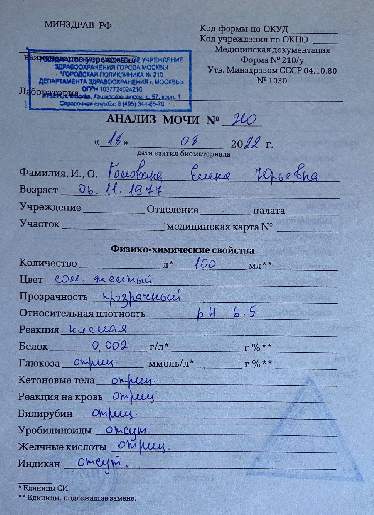 МИНЗДРАВ РФ
Код формы по ОКУД
Код учреждения по ОКПО
Медицинская документация
Форма № 210/у
Утв. Минздравом СССР 04.10.80
№ 1030
УЧРЕЖДЕНИЕ
ЗДРАВООХРАНЕНИЯ ГОРОДА МОСКВЫ
"ГОРОДСКАЯ ПОЛИКЛИНИКА № 210
ДЕПАРТАМЕНТА ЗДРАВООХРАНЕНИЯ г. МОСКВЫ"
ОГРН
Лаборатория
АНАЛИЗ МОЧИ № 210
« 18 » 08 2022 г.
дата взятия биоматериала
Фамилия, И., О. Елена Юрьевна
Возраст 06.11.1977
Учреждение Отделение палата
Участок медицинская карта №
Физико-химические свойства
Количество л* 100 мл**
Цвет сол. желтый
Прозрачность прозрачный
Относительная плотность pH 6.5
Реакция кислая
Белок 0,002 г/л* г %**
Глюкоза отриц ммоль/л* г %**
Кетоновые тела отриц
Реакция на кровь отриц
Билирубин отриц
Уробилиноиды отсут
Желчные кислоты отриц.
Индикан отсут.
* Единицы СИ.
** Единицы, подлежащие замене.